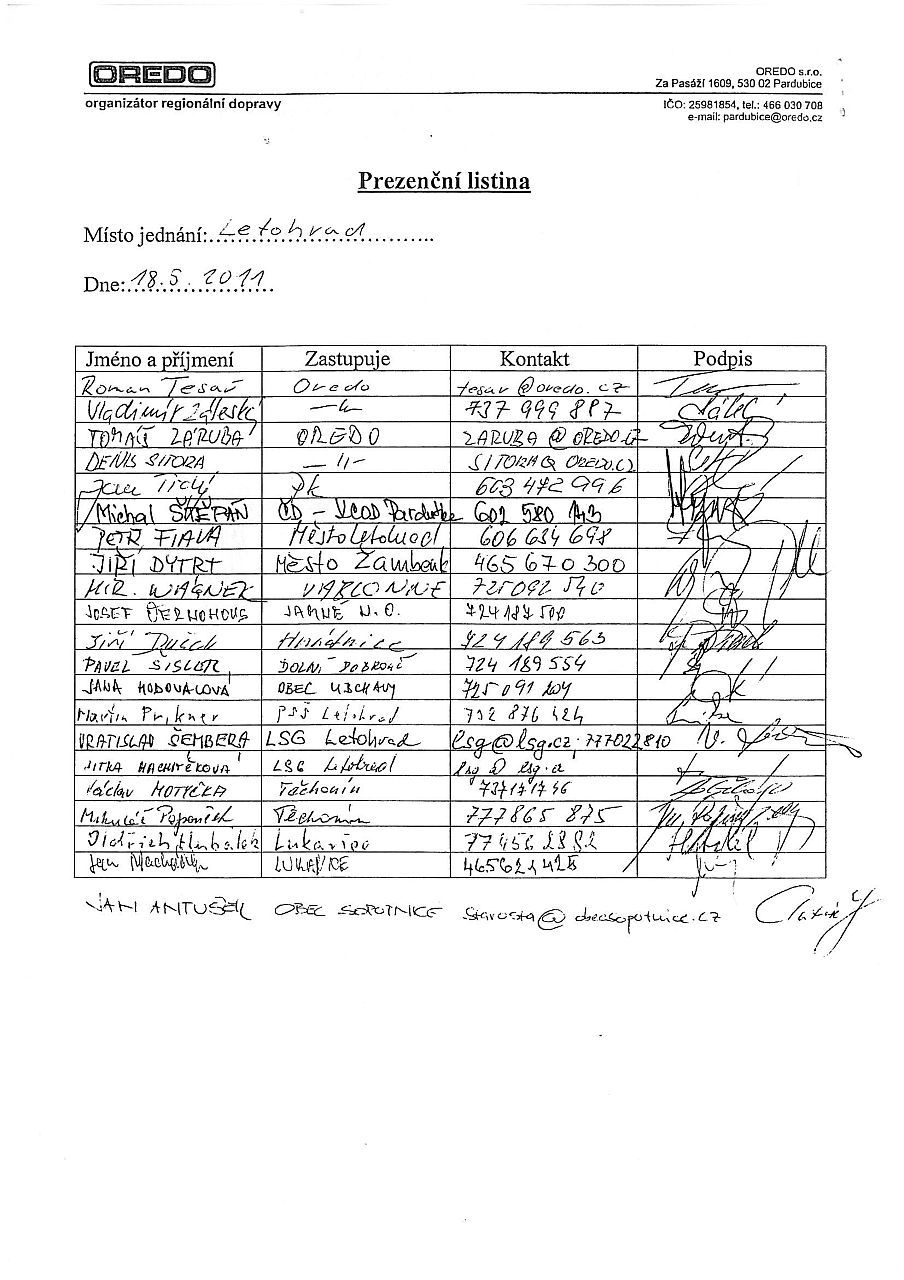 OREDO
organizátor regionální dopravy
OREDO s.r.o.
Za Pasáží 1609, 530 02 Pardubice
IČO: 25981854, tel.: 466 030 708
e-mail: pardubice@oredo.cz
Prezenční listina
Místo jednání: Letohrad
Dne: 18.5. 2011
Jméno a příjmení Zastupuje Kontakt Podpis
Roman Tesař Oredo tesar@oredo.cz
Vladimír 737 999 887
TOMÁŠ ZÁRUBA OREDO ZARUBA@OREDO.CZ
DENIS SITORA —11— SITORA@OREDO.CZ
Jan Tichý Pk 603 472 996
Michal ŠTĚPÁN ČD - KCOD Pardubice 602 580 143
PETR FIALA Město Letohrad 606 634 698
JIŘÍ DYTRT Město Žamberk 465 670 300
MIR. WAGNER 725092 540
JOSEF ČERNOHOUS JAMNÉ N.O. 724 187 500
Jiří Hnátnice 724 189 563
PAVEL ŠIŠLER DOLNÍ DOBROUČ 724 189 554
JANA HODOVALOVÁ OBEC 725 091 204
Martin Prikner PSŠ Letohrad 732 876 424
VRATISLAV ŠEMBERA LSG Letohrad lsg@lsg.cz 777022810
JITKA LSG Letohrad lsg@lsg.cz
Václav MOTYČKA Těchonín 737171746
Mikuláš Popovič Těchonín 777865 875
Jidřich Hubálek Lukavice 77456 2882
Jan LUKAVICE 465621428
JAN ANTUŠEK OBEC SOPOTNICE starosta@obecsopotnice.cz